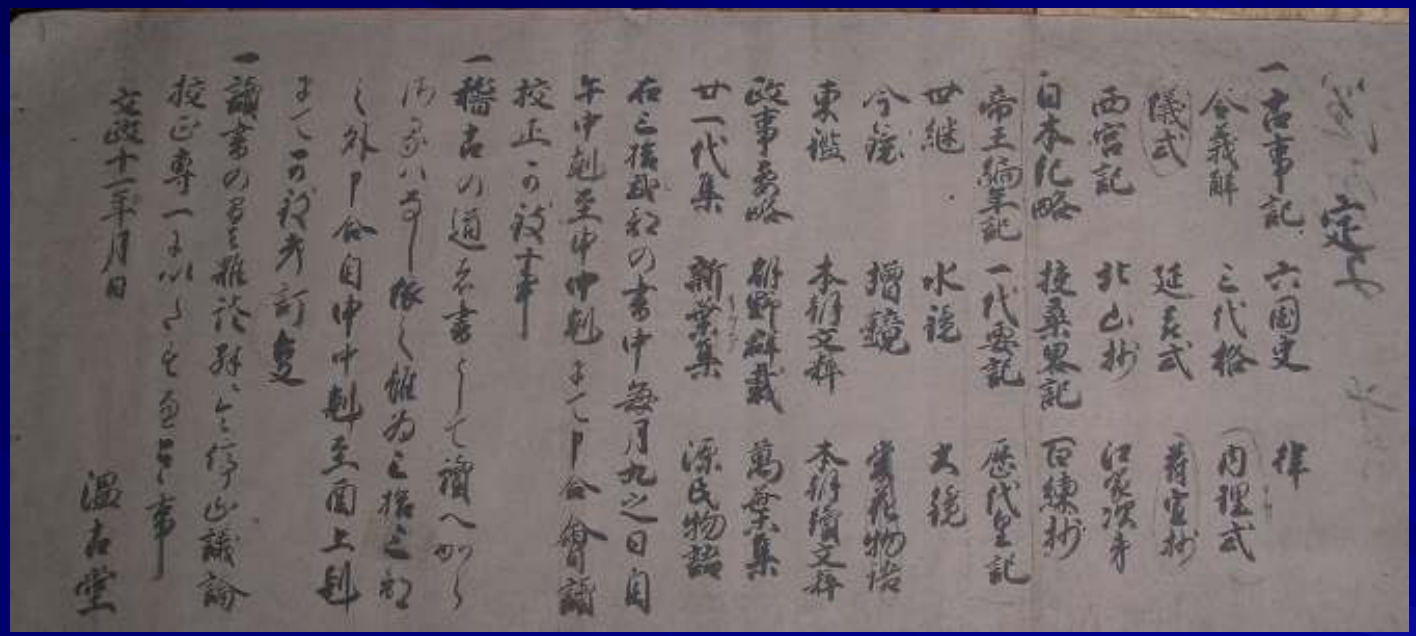 定
一古事記 六國史 律
令義解 三代格 内理式
儀式 延喜式 蔵官抄
西宮記 北山抄 江家次第
日本紀略 扶桑畧記 百練抄
帝王編年記 一代要記 歴代皇記
世継 水鏡 大鏡
今鏡 増鏡 栄花物語
東鑑 本朝文粋 本朝續文粋
政事要略 朝野群載 萬葉集
廿一代集 新葉集 源氏物語
右三拾弐部の書中毎月九之日自
午中剋至申中剋まて申合會讀
校正可致事
一稽古の道者書として讀へから
さるハなし依之雖為三拾三部
之外申合自申中剋至酉上剋
まて可致考訂事
一讀書の間は雑談
校正専一
文政十一年月日 温古堂